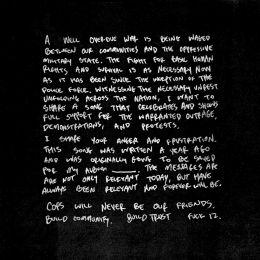 A WELL OVERDUE WAR IS BEING WAGED
BETWEEN OUR COMMUNITIES AND THE OPPRESSIVE
MILITARY STATE. THE FIGHT FOR BASIC HUMAN
RIGHTS AND SURVIVAL IS AS NECESSARY NOW
AS IT HAS BEEN SINCE THE INCEPTION OF THE
POLICE FORCE. WITNESSING THE NECESSARY UNREST
UNFOLDING ACROSS THE NATION, I WANT TO
SHARE A SONG THAT CELEBRATES AND SHOWS
FULL SUPPORT FOR THE WARRANTED OUTRAGE,
DEMONSTRATIONS, AND PROTESTS.
I SHARE YOUR ANGER AND FRUSTRATION.
THIS SONG WAS WRITTEN A YEAR AGO
AND WAS ORIGINALLY GOING TO BE SAVED
FOR MY ALBUM ______. THE MESSAGES ARE
ARE NOT ONLY RELEVANT TODAY, BUT HAVE
ALWAYS BEEN RELEVANT AND FOREVER WILL BE.
COPS WILL NEVER BE OUR FRIENDS.
BUILD COMMUNITY. BUILD TRUST FUCK 12.